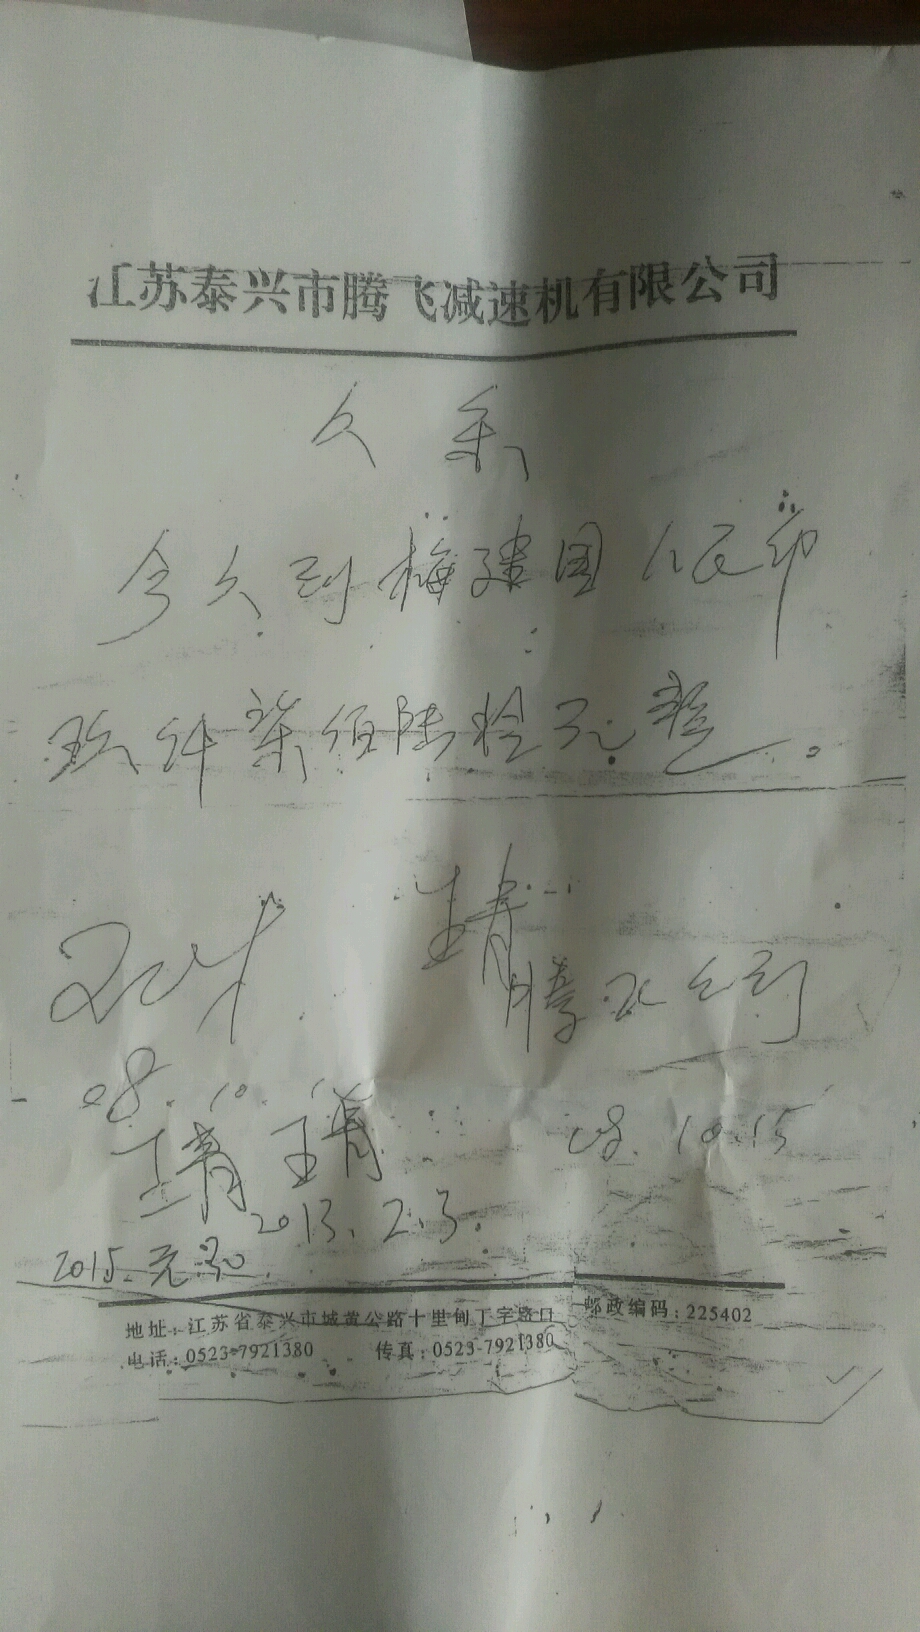 江苏泰兴市腾飞减速机有限公司
欠条
今欠到梅建国人民币
玖仟柒佰陆拾元整。
王靖
腾飞公司
08.10.
08.10.15
王靖 王靖
2013.2.3.
2015.元.30
地址:江苏省泰兴市城黄公路十里甸丁字路口 邮政编码:225402
电话:0523-7921380 传真:0523-7921380